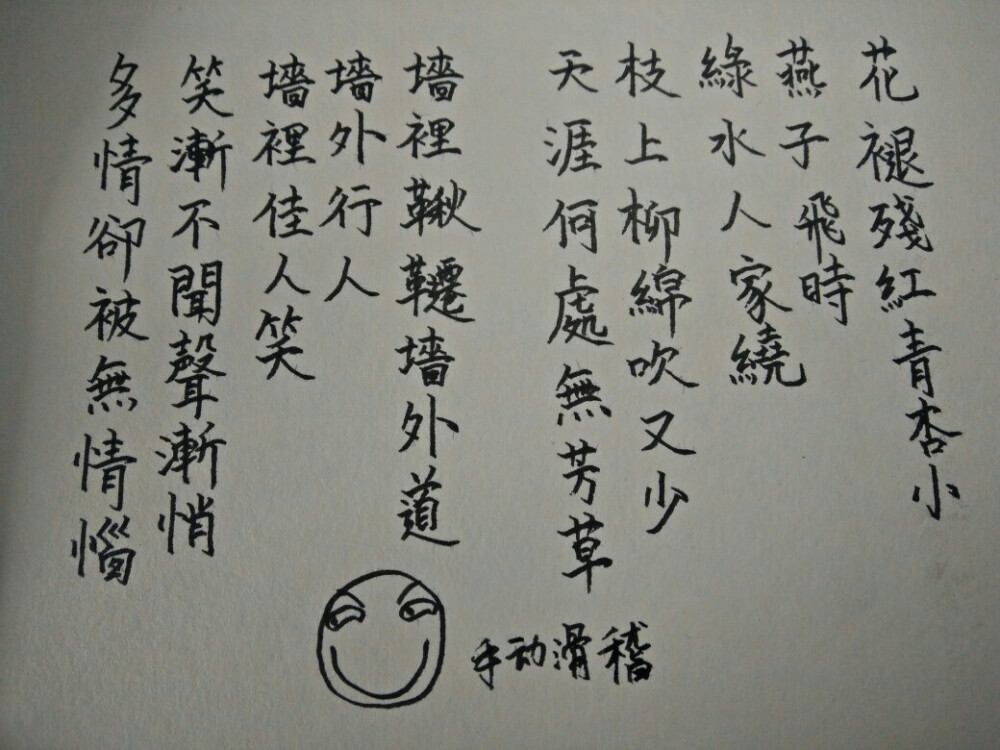 花褪殘紅青杏小
燕子飛時
綠水人家繞
枝上柳綿吹又少
天涯何處無芳草
墻裡鞦韆墻外道
墻外行人
墻裡佳人笑
笑漸不聞聲漸悄
多情卻被無情惱
手动滑稽